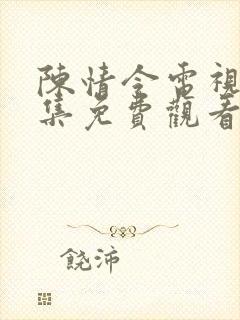 陳情令電視
集免費觀看
饒沛